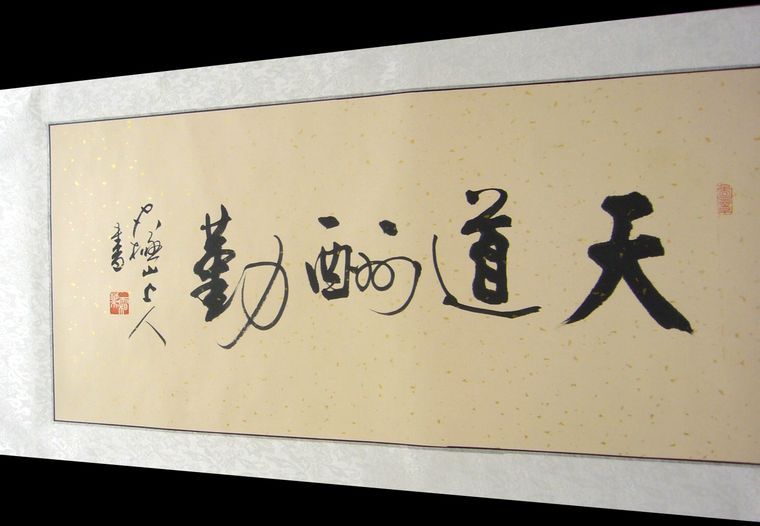 天道酬勤
山上人
書